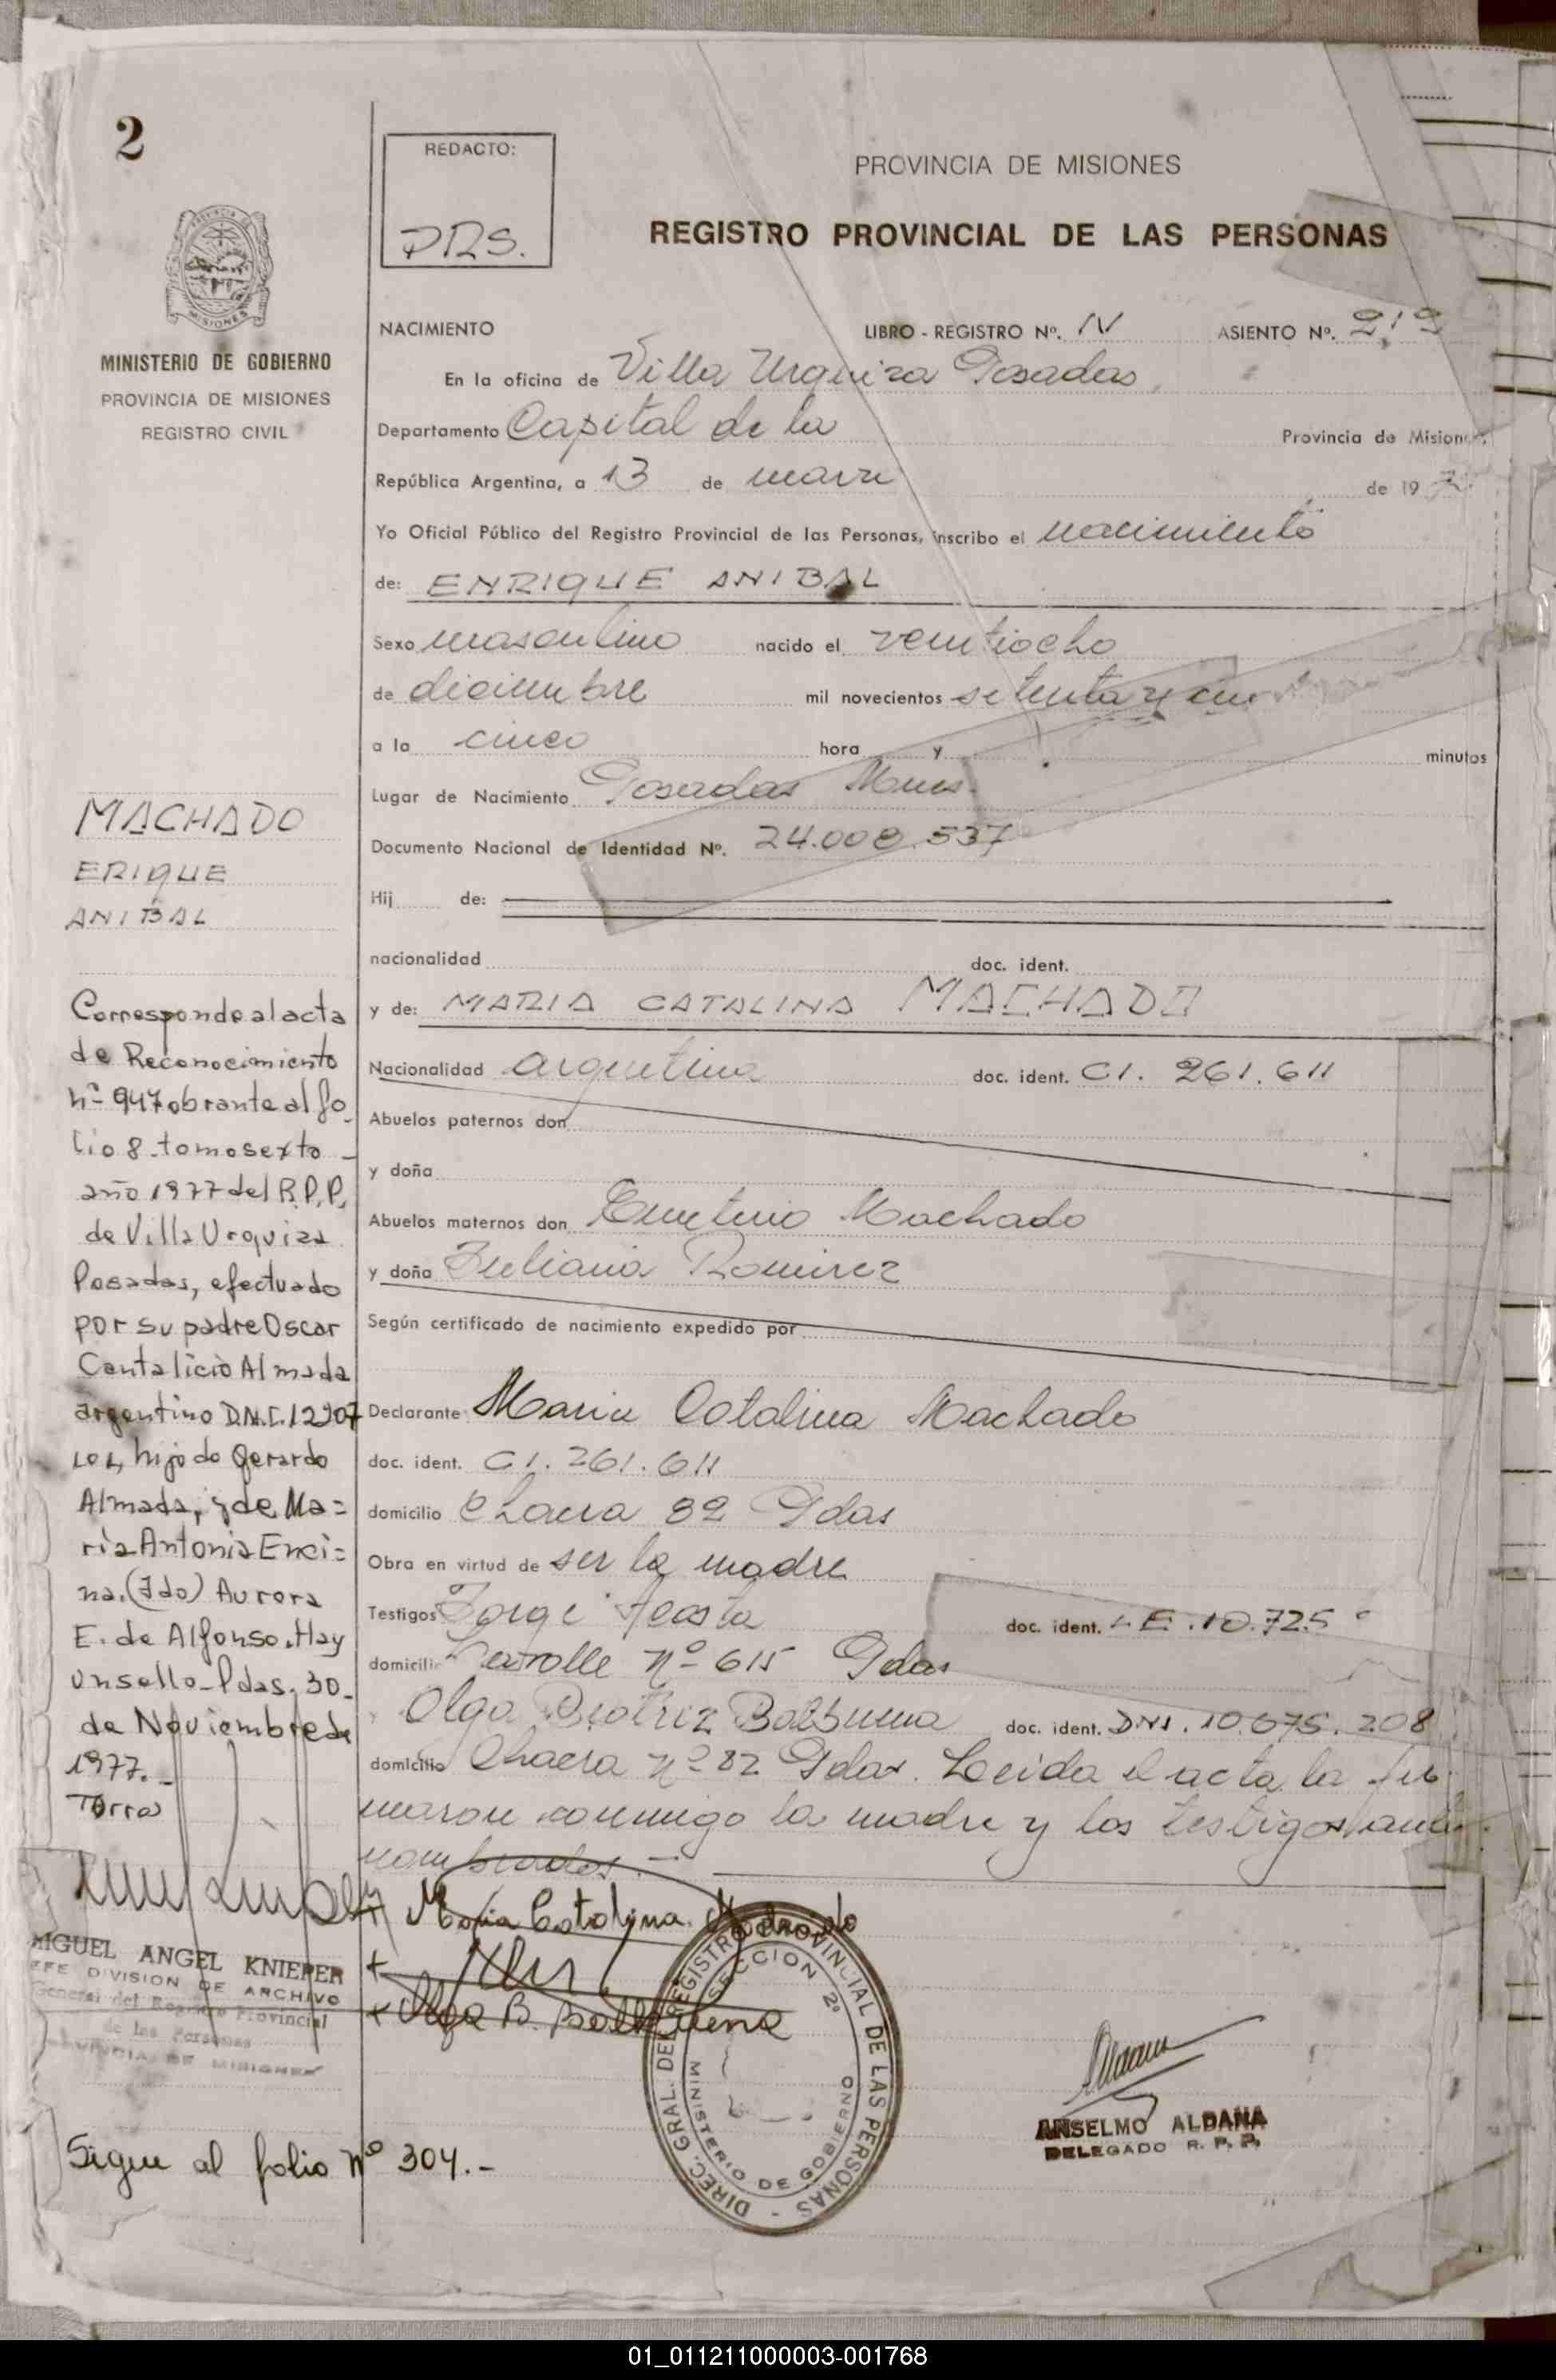 2
REDACTO:
PRS.
PROVINCIA DE MISIONES
REGISTRO PROVINCIAL DE LAS PERSONAS
MINISTERIO DE GOBIERNO
PROVINCIA DE MISIONES
REGISTRO CIVIL
NACIMIENTO LIBRO - REGISTRO Nº. IV ASIENTO Nº.
En la oficina de Villa Urquiza Posadas
Departamento Capital de la Provincia de Misiones
República Argentina, a 13 de marzo de 19
Yo Oficial Público del Registro Provincial de las Personas, inscribo el nacimiento
de: ENRIQUE ANIBAL
Sexo masculino nacido el veintiocho
de diciembre mil novecientos setenta y
a la cinco hora y minutos
Lugar de Nacimiento Posadas Mnes.
Documento Nacional de Identidad Nº. 24.008.537
Hij de:
nacionalidad doc. ident.
y de: MARIA CATALINA MACHADO
Nacionalidad argentina doc. ident. CI. 261.611
Abuelos paternos don
y doña
Abuelos maternos don Emeterio Machado
y doña Juliana Romirez
Según certificado de nacimiento expedido por
Declarante Maria Catalina Machado
doc. ident. CI. 261.611
domicilio Chacra 82 Pdas
Obra en virtud de ser la madre
Testigos Jorge Acosta doc. ident. L E .10.725
domicilio nº 615 Pdas
Olga Beatriz Balbuena doc. ident. DNI. 10.675.208
domicilio Chacra nº 82 Pdas. Leida el acta la fir
maron conmigo la madre y los testigos ante
nombrados.-
Maria Catalina Machado
Olga B. Balbuena
MACHADO
ERIQUE
ANIBAL
Corresponde al acta
de Reconocimiento
nº 947 obrante al fo
lio 8 tomo sexto
año 1977 del R.P.P.
de Villa Urquiza
Posadas, efectuado
por su padre Oscar
Cantalicio Almada
argentino D.N.I. 12207
hijo de Gerardo
Almada, y de Ma=
ria Antonia Enci=
na. (Fdo) Aurora
E. de Alfonso. Hay
un sello Pdas. 30
de Noviembre de
1977.-
Torra
MIGUEL ANGEL KNIEPER
JEFE DIVISION DE ARCHIVO
General del Registro Provincial
de las Personas
PROVINCIA DE MISIONES
DIREC. GRAL. DEL REGISTRO PROVINCIAL DE LAS PERSONAS -
SECCION 2º
MINISTERIO DE GOBIERNO
ANSELMO ALDANA
DELEGADO R. P. P.
Sigue al folio nº 304.-
01_011211000003-001768